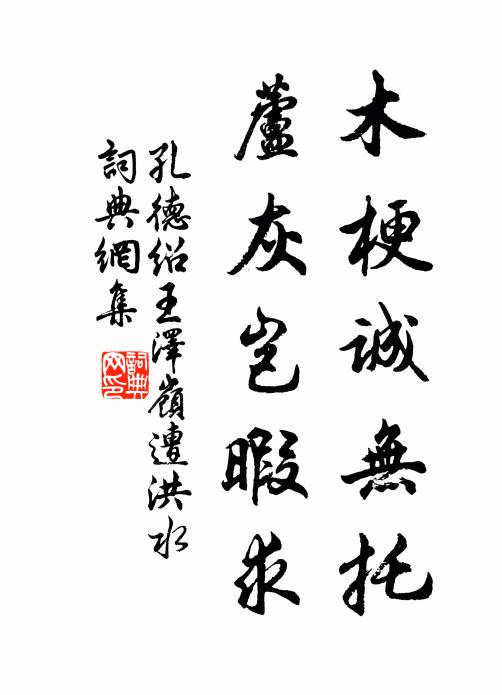 木梗誠無托
蘆灰豈暇求
孔德紹王澤嶺遭洪水
詞典網集
詞典網印